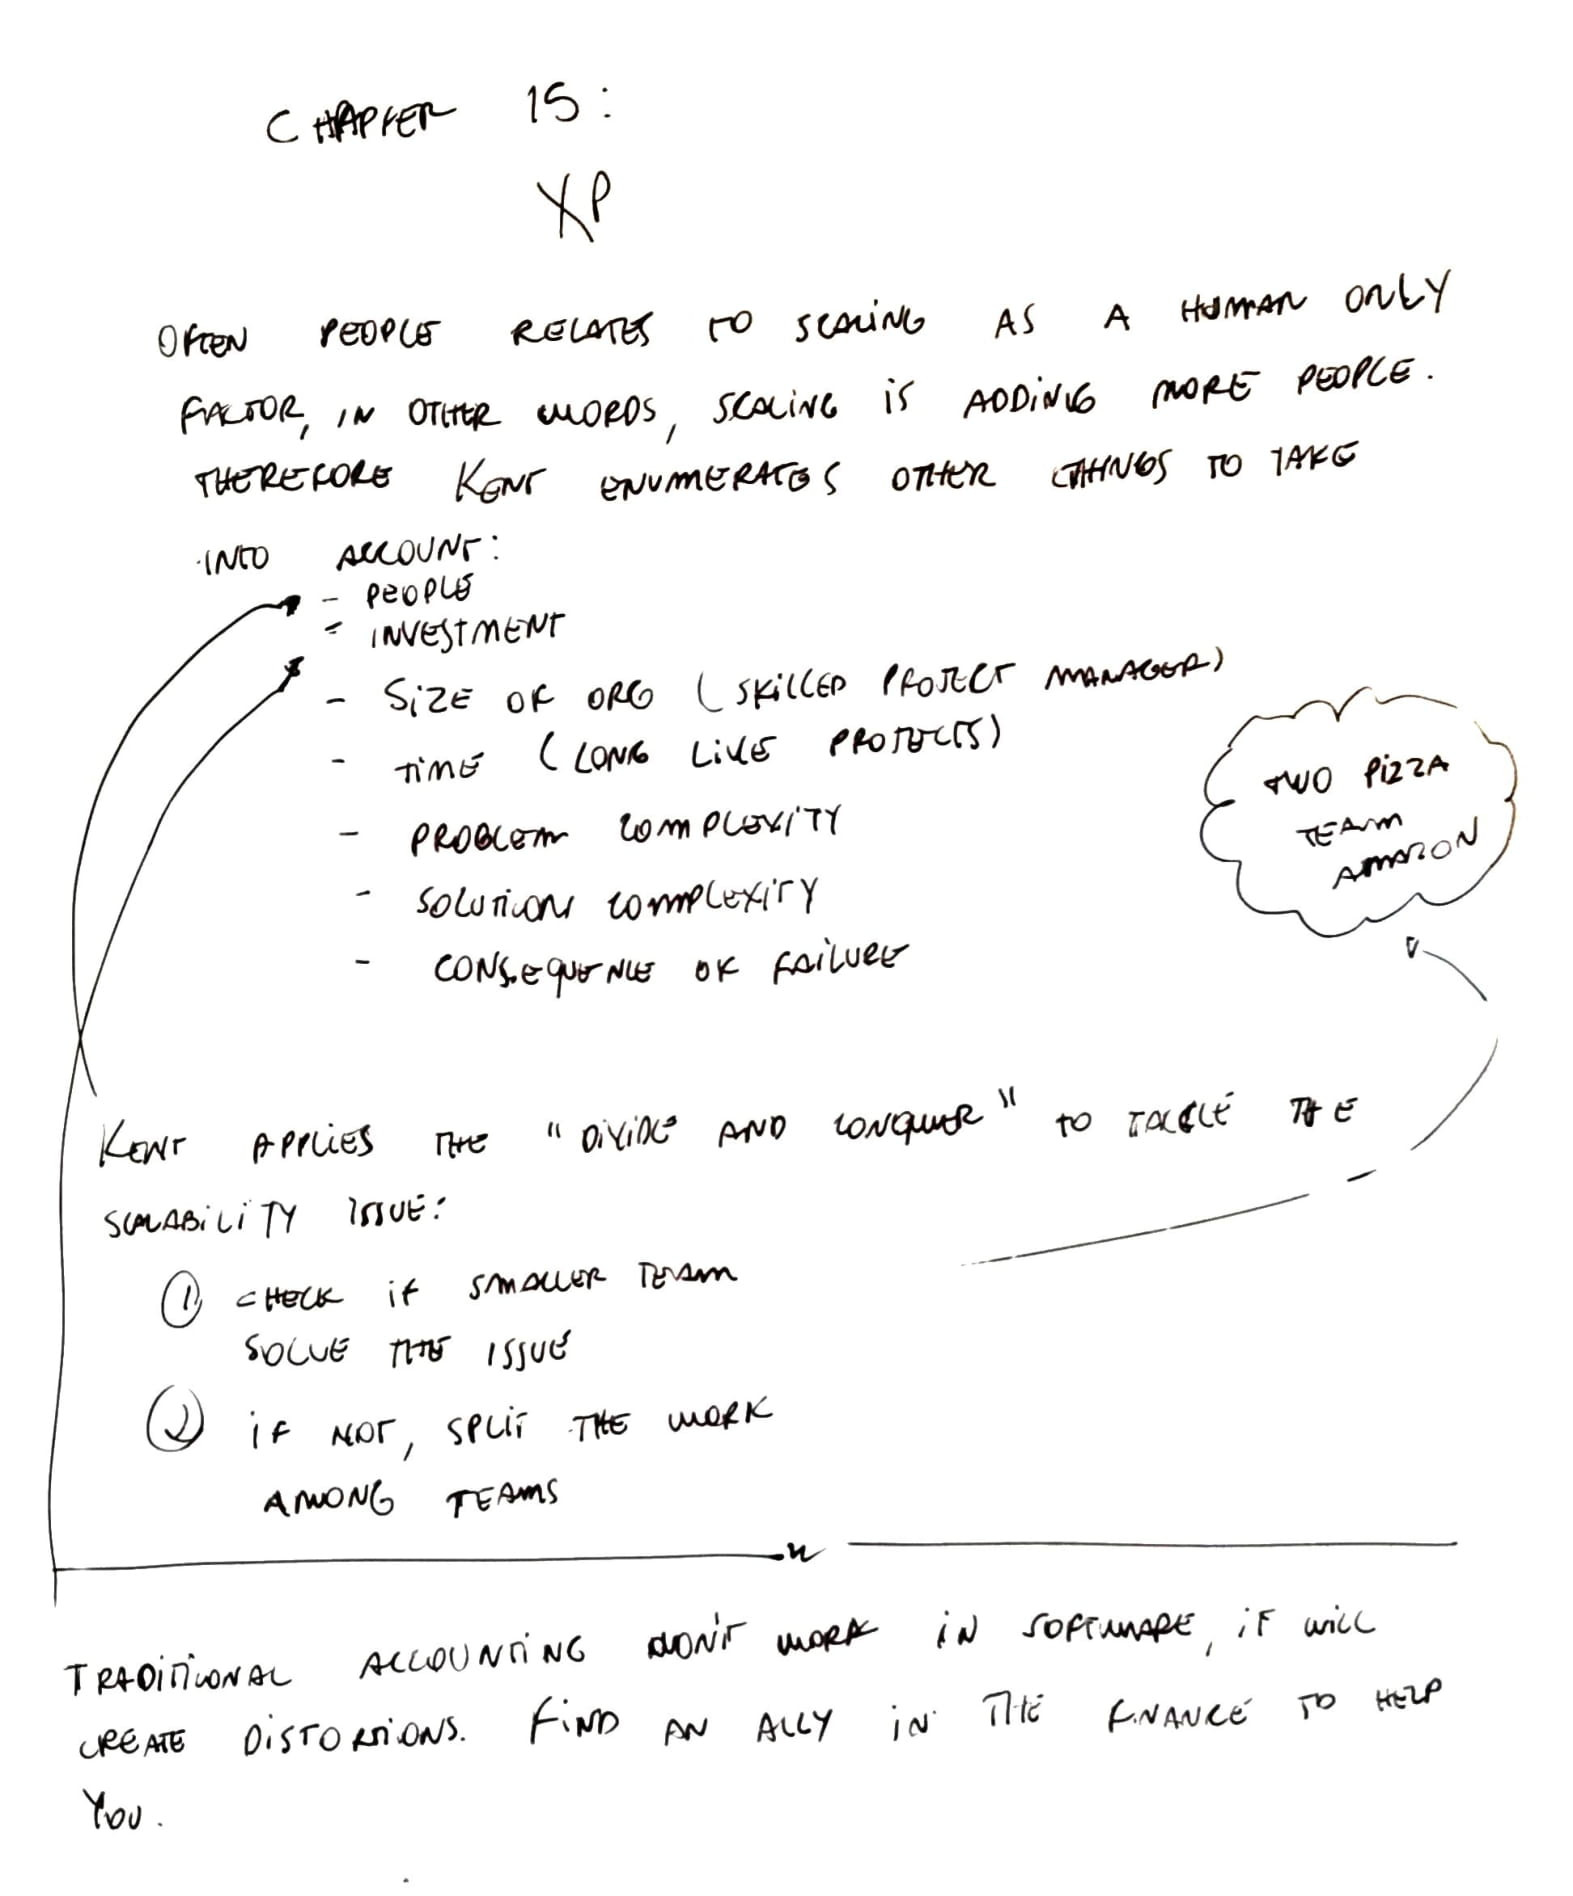 CHAPTER 15:
XP
OFTEN PEOPLE RELATES TO SCALING AS A HUMAN ONLY
FACTOR, IN OTHER WORDS, SCALING IS ADDING MORE PEOPLE.
THEREFORE KENT ENUMERATES OTHER THINGS TO TAKE
INTO ACCOUNT:
- PEOPLE
- INVESTMENT
- SIZE OF ORG (SKILLED PROJECT MANAGER)
- TIME (LONG LIVE PROJECTS)
- PROBLEM COMPLEXITY
- SOLUTION COMPLEXITY
- CONSEQUENCE OF FAILURE
TWO PIZZA
TEAM
AMAZON
KENT APPLIES THE "DIVIDE AND CONQUER" TO TACKLE THE
SCALABILITY ISSUE:
1 CHECK IF SMALLER TEAM
SOLVE THE ISSUE
2 IF NOT, SPLIT THE WORK
AMONG TEAMS
TRADITIONAL ACCOUNTING DON'T WORK IN SOFTWARE, IT WILL
CREATE DISTORTIONS. FIND AN ALLY IN THE FINANCE TO HELP
YOU.